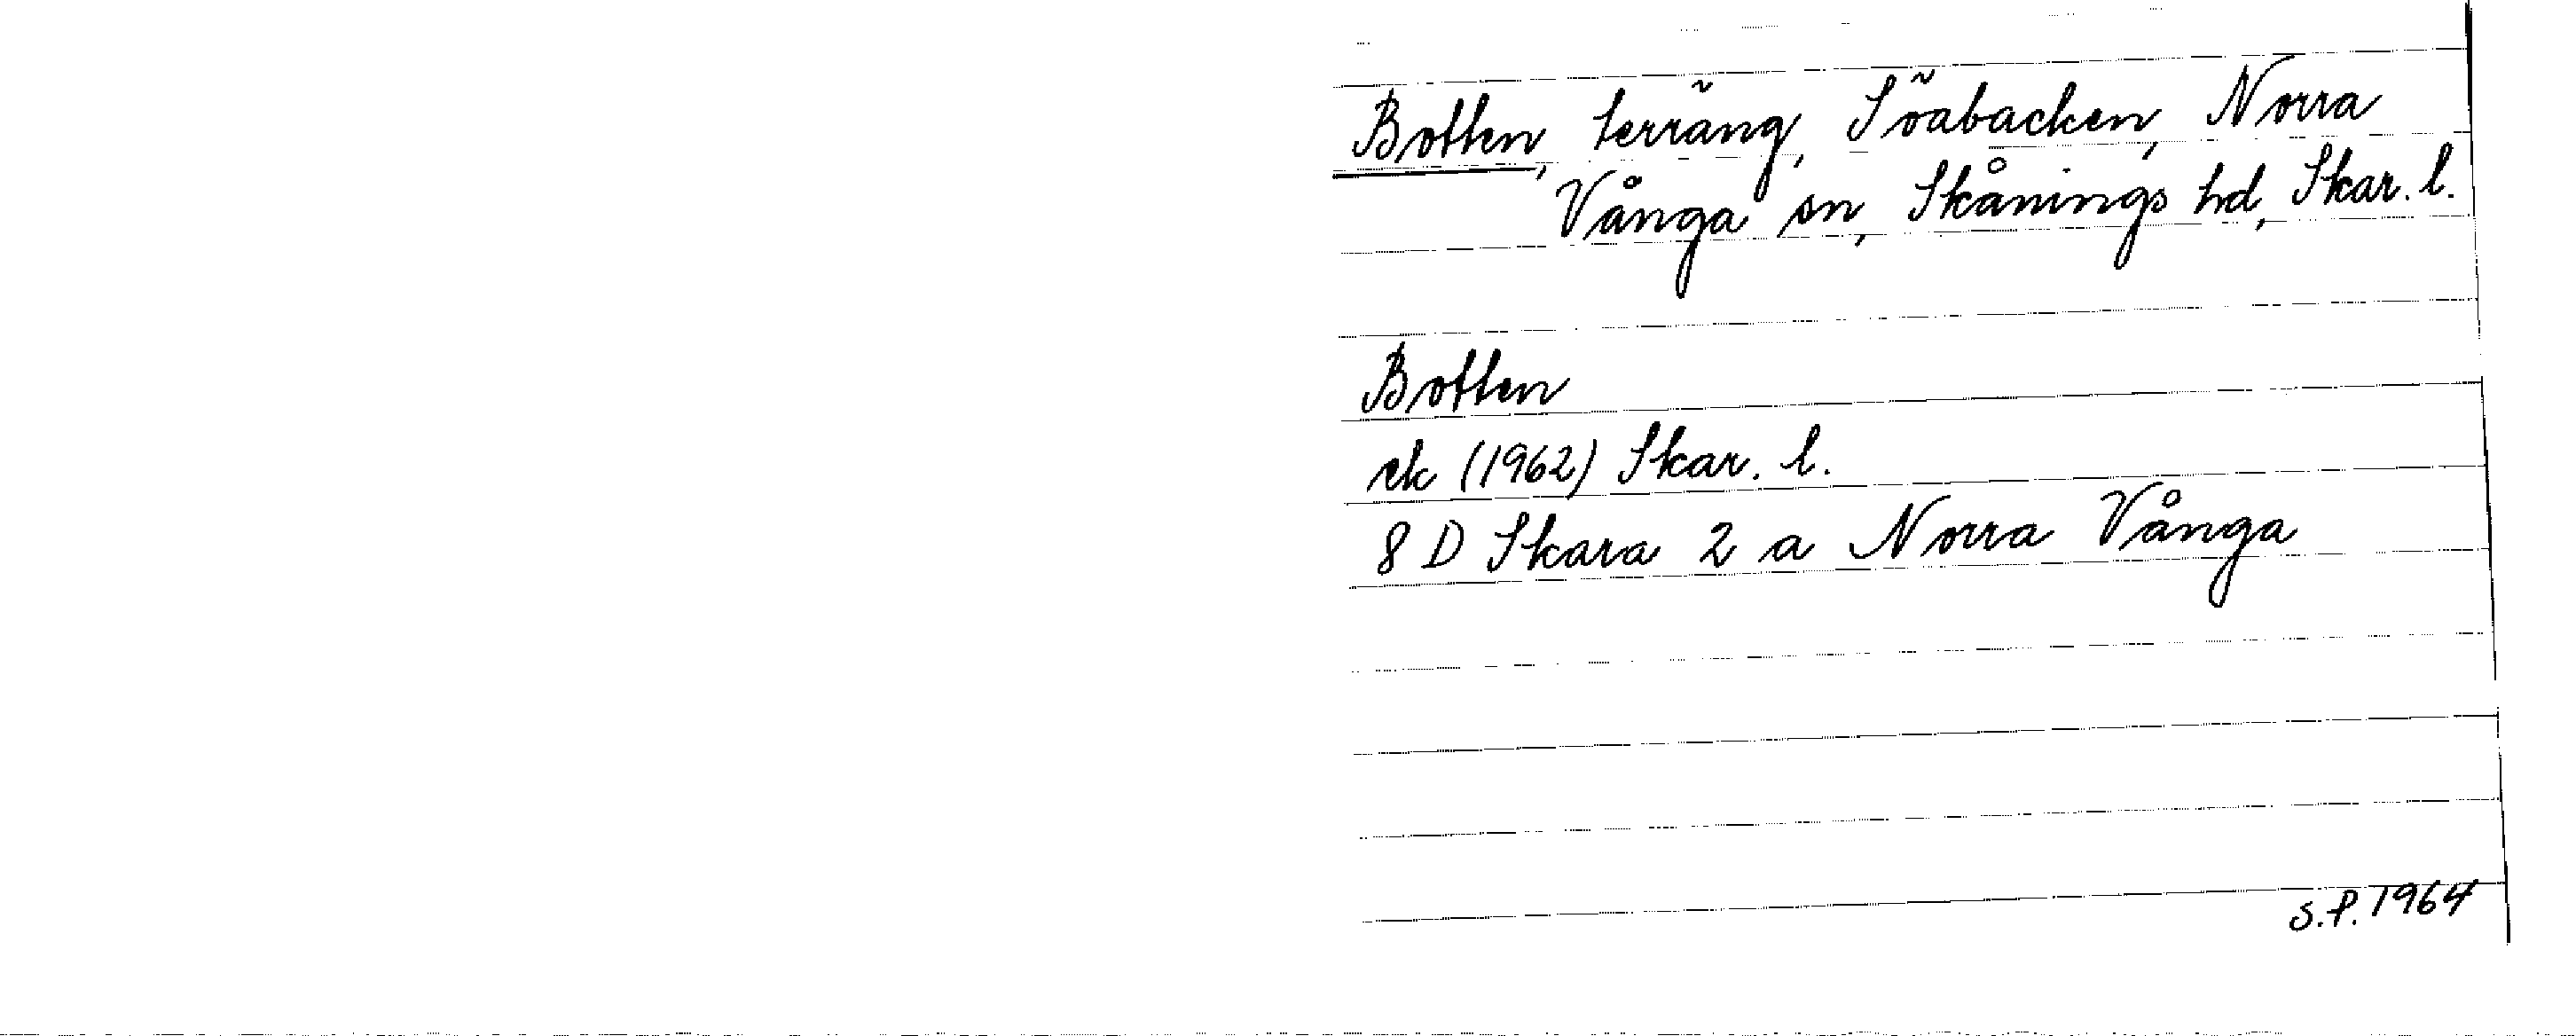 Botten, terräng, Söabacken, Norra
Vånga sn, Skånings hd, Skar. l.
Botten
ek (1962) Skar. l.
8 D Skara 2 a Norra Vånga
S.P. 1964